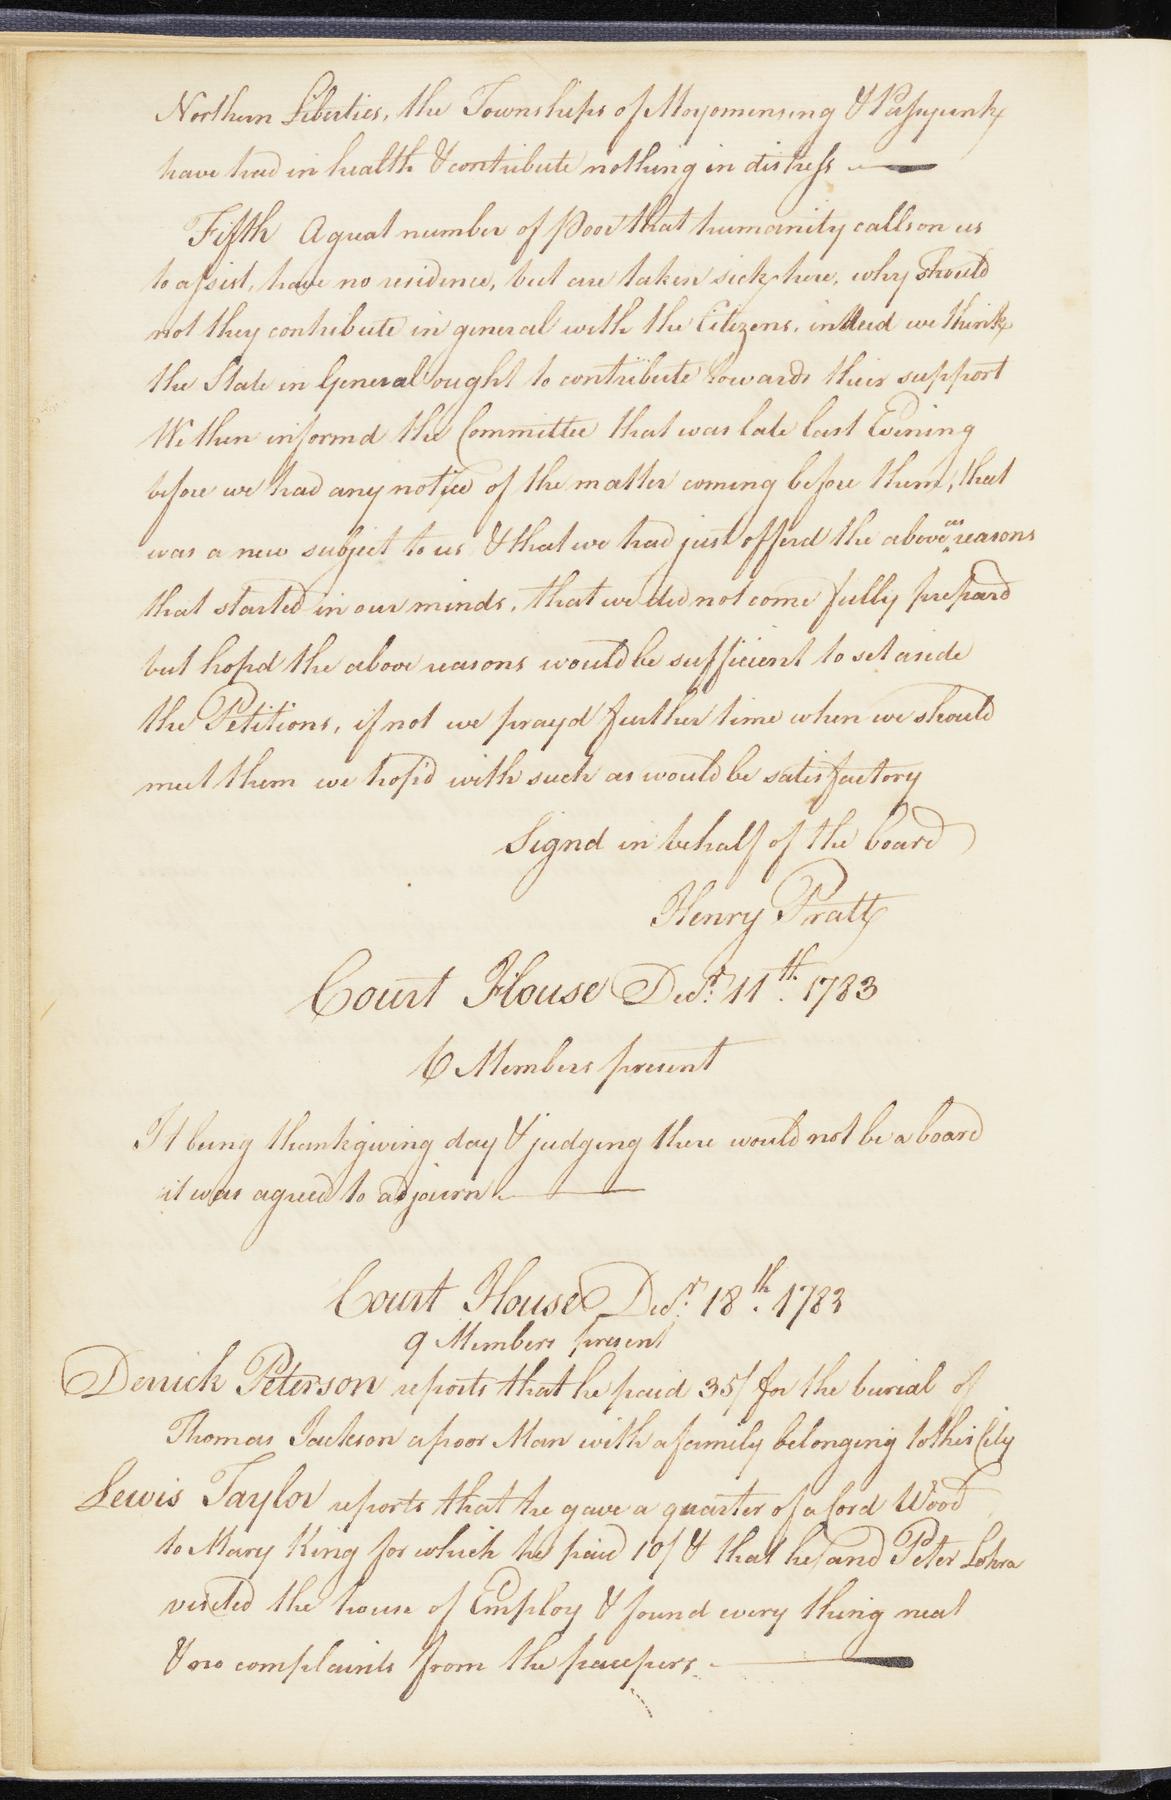 Northern Liberties, the Townships of Moyomensing & Passyunk
have had in health & contribute nothing in distress
Fifth A great number of poor that humanity calls on us
to assist, have no residence, but are taken sick here, why should
not they contribute in general with the Citizens, indeed we think
the State in General ought to contribute towards their support
We then informd the Committee that was late last Evening
before we had any notice of the matter coming before them, that
was a new subject to us & that we had just offerd the above as reasons
that started in our minds, that we did not come fully prepard
but hopd the above reasons would be sufficient to set aside
the Petitions, if not we prayd further time when we should
meet them we hop'd with such as would be satisfactory
Signd in behalf of the board
Henry Pratt
Court House Decr. 11th. 1783
6 Members present
It being thanksgiving day & judging there would not be a board
it was agreed to adjourn
Court House Decr. 18th. 1783
9 Members present
Derrick Peterson reports that he paid 35/ for the burial of
Thomas Jackson a poor Man with a family belonging to this City
Lewis Taylor reports that he gave a quarter of a Cord Wood
to Mary King for which he paid 10/ & that he and Peter Lohra
visited the house of Employ & found every thing neat
& no complaints from the paupers